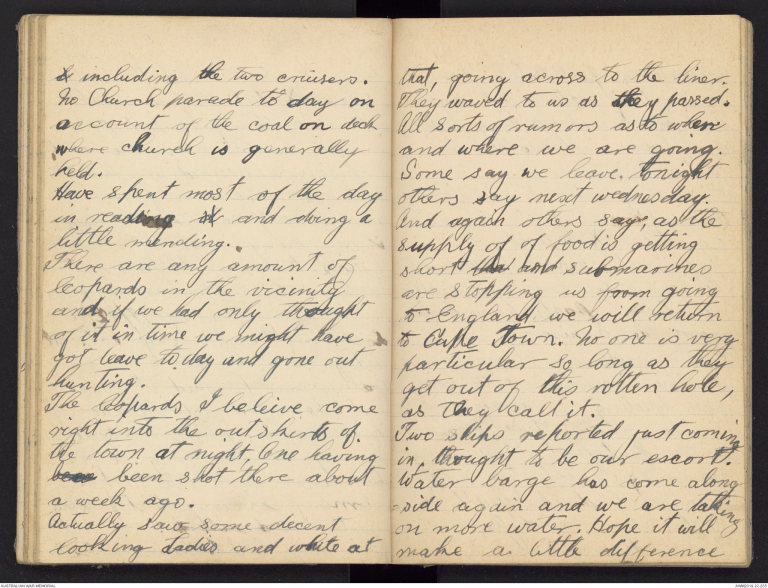 & including the two cruisers.
No Church parade to day on
account of the coal on deck
where church is generally
held.
Have spent most of the day
in reading and doing a
little mending.
There are any amount of
leopards in the vicinity
and if we had only thought
of it in time we might have
got leave to day and gone out
hunting.
The leopards I beleive come
right into the outskirts of.
the town at night. One having
been shot there about
a week ago.
Actually saw some decent
looking ladies and white at
that, going across to the liner.
They waved to us as they passed.
All sorts of rumors as to when
and where we are going.
Some say we leave tonight
others say next wednesday.
And again others say, as the
supply of of food is getting
short and submarines
are stopping us from going
to England we will return
to Cape Town. No one is very
particular so long as they
get out of this rotten hole,
as they call it.
Two ships reported just coming
in, thought to be our escort.
Water barge has come along
side again and we are taking
on more water. Hope it will
make a little difference
AUSTRALIAN WAR MEMORIAL